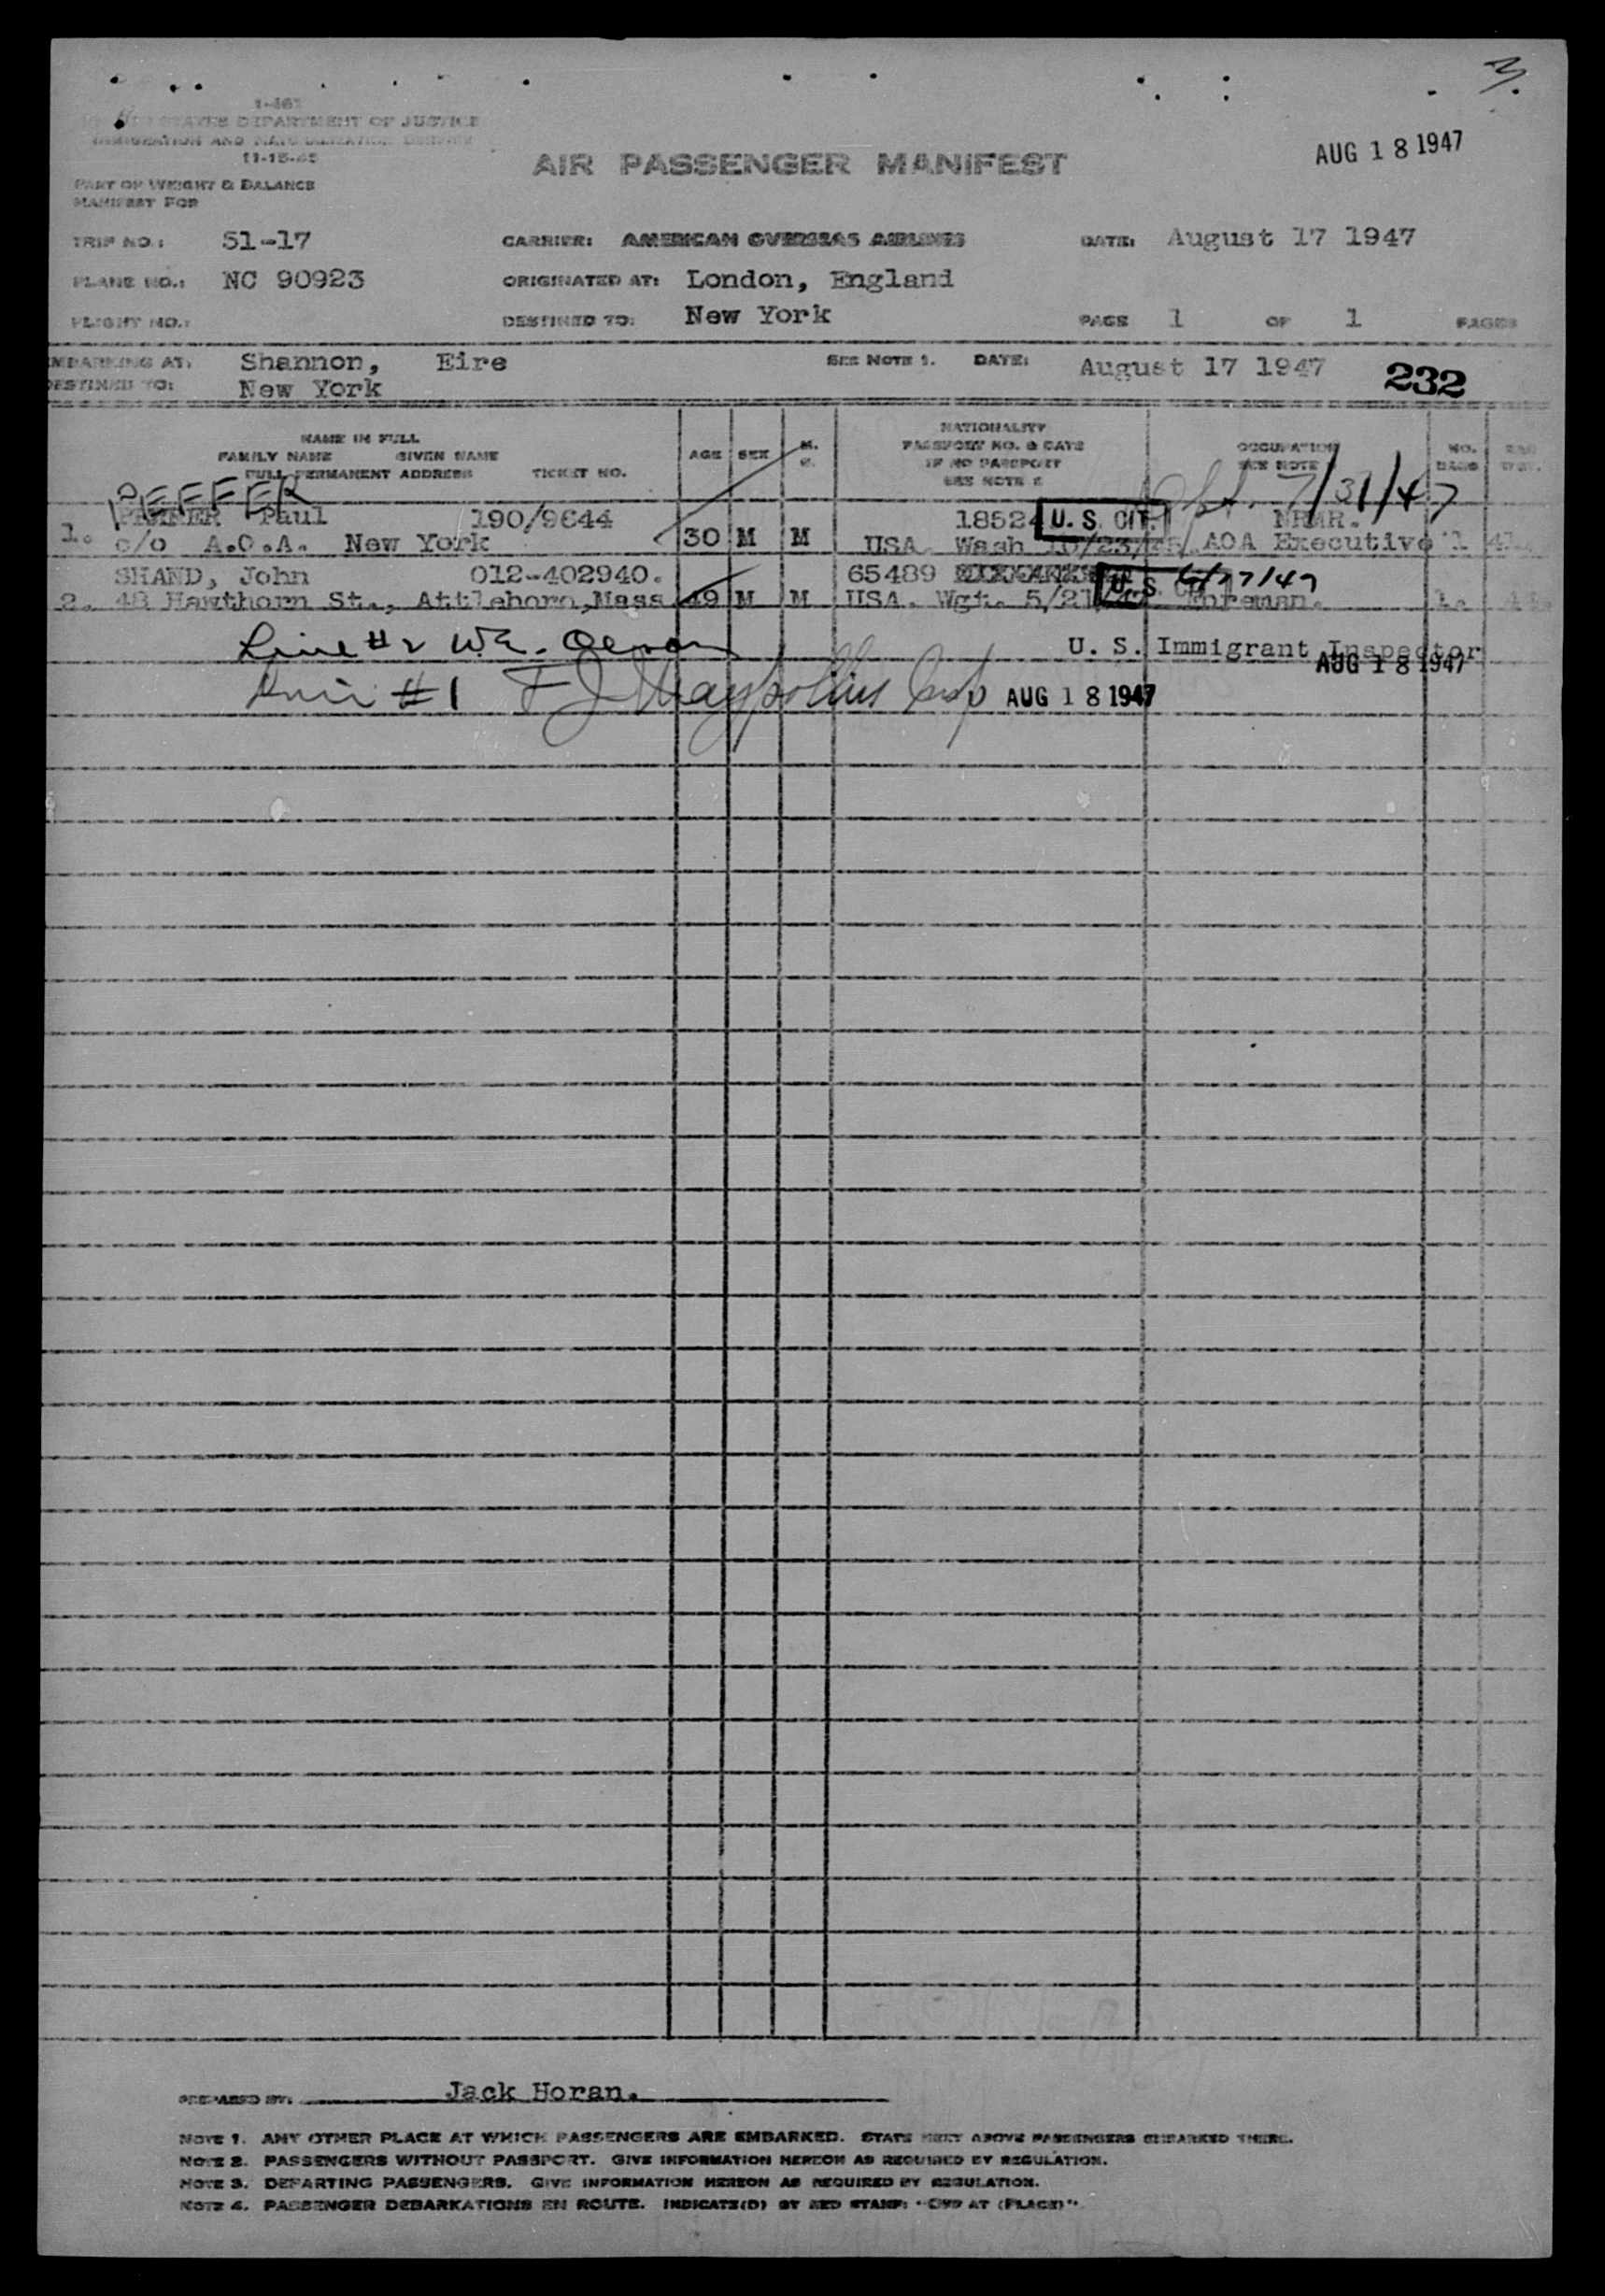 1-467
STATES DEPARTMENT OF JUSTICE
IMMIGRATION AND NATURALIZATION SERVICE
11-15-45
AIR PASSENGER MANIFEST
AUG 18 1947
PART OF WEIGHT & BALANCE
MANIFEST FOR
TRIP NO.: S1-17 CARRIER: AMERICAN OVERSEAS AIRLINES DATE: August 17 1947
PLANE NO.: NC 90923 ORIGINATED AT: London, England
FLIGHT NO.: DESTINED TO: New York PAGE 1 OF 1 PAGES
EMBARKING AT: Shannon, Eire SEE NOTE 1. DATE: August 17 1947 232
DESTINED TO: New York
NAME IN FULL
FAMILY NAME GIVEN NAME
FULL PERMANENT ADDRESS TICKET NO. AGE SEX M. NATIONALITY
PASSPORT NO. & DATE
IF NO PASSPORT
SEE NOTE 2 OCCUPATION
SEE NOTE NO. BAGS
PEFFER 7/31/47
Paul 190/9644 18524 U. S. CIT. NRMR.
1. c/o A.O.A. New York 30 M M USA. Wash 10/23/ AOA Executive 1
SHAND, John 012-402940. 65489 U. S. CIT
2. 48 Hawthorn St., Attleboro, Mass 49 M M USA. Wgt. 5/21/ Foreman. 1.
Line #2 W.E. U. S. Immigrant Inspector
AUG 18 1947
Line #1 F J Insp AUG 18 1947
PREPARED BY: Jack Horan.
NOTE 1. ANY OTHER PLACE AT WHICH PASSENGERS ARE EMBARKED. STATE NEXT ABOVE PASSENGERS EMBARKED THERE.
NOTE 2. PASSENGERS WITHOUT PASSPORT. GIVE INFORMATION HEREON AS REQUIRED BY REGULATION.
NOTE 3. DEPARTING PASSENGERS. GIVE INFORMATION HEREON AS REQUIRED BY REGULATION.
NOTE 4. PASSENGER DEBARKATIONS EN ROUTE. INDICATE(D) BY RED STAMP: "OFF AT (PLACE)".